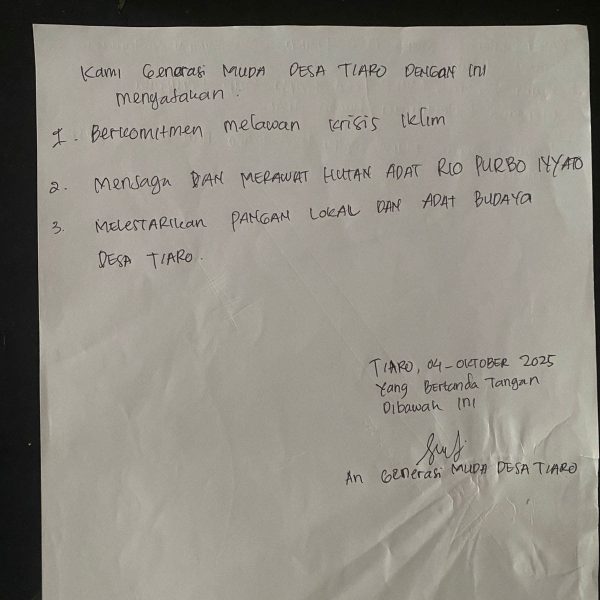 Kami Generasi MUDA DESA TIARO DENGAN INI
menyatakan :
1. Berkomitmen melawan krisis iklim
2. Mensaga DAN MERAWAT HUTAN ADAT RIO PURBO NYATO
3. MELESTARIkan PANGAN LOKAL DAN ADAT BUDAYA
DESA TIARO.
TIARO, 04-OKTOBER 2025
Yang Bertanda Tangan
Dibawah Ini
An Generasi MUDA DESA TIARO